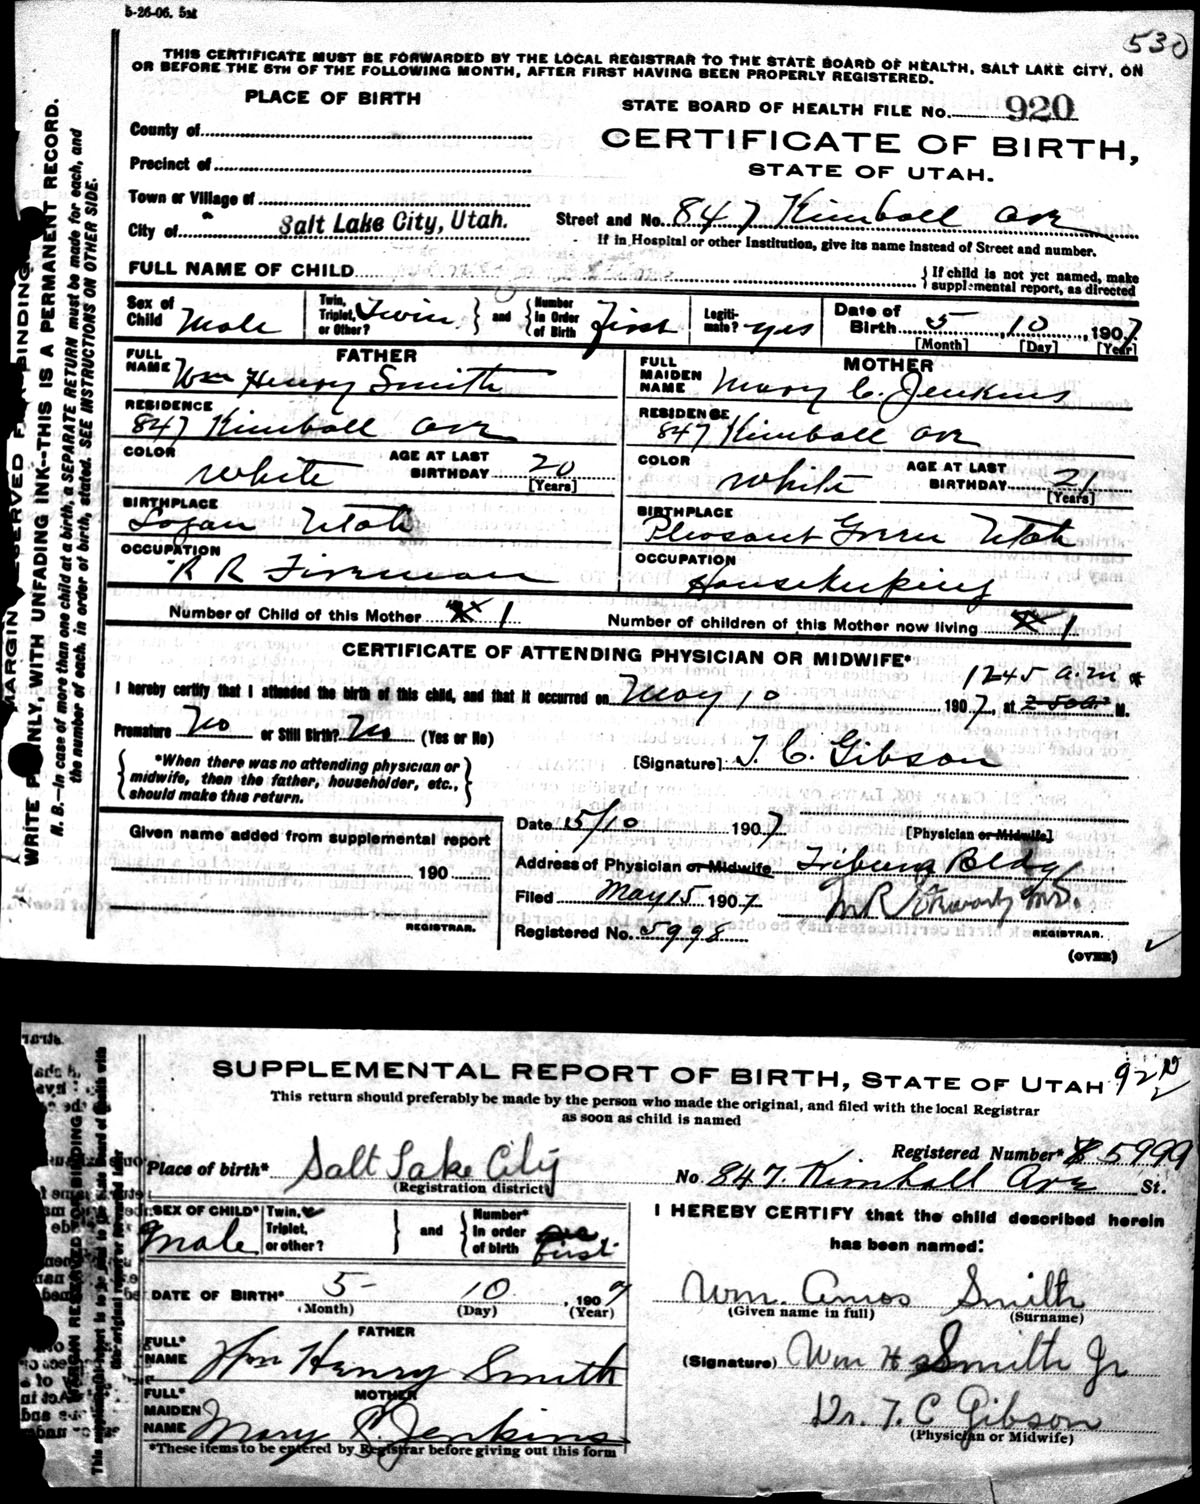 5-26-06. 5M
530
THIS CERTIFICATE MUST BE FORWARDED BY THE LOCAL REGISTRAR TO THE STATE BOARD OF HEALTH, SALT LAKE CITY, ON
OR BEFORE THE 5TH OF THE FOLLOWING MONTH, AFTER FIRST HAVING BEEN PROPERLY REGISTERED.
PLACE OF BIRTH
STATE BOARD OF HEALTH FILE No. 920
County of
CERTIFICATE OF BIRTH,
Precinct of
STATE OF UTAH.
Town or Village of
City of Salt Lake City, Utah.
Street and No. 847 Kimball Ave
If in Hospital or other Institution, give its name instead of Street and number.
FULL NAME OF CHILD
If child is not yet named, make
supplemental report, as directed
Sex of Child Male
Twin, Triplet, or Other? Twin
and
Number in Order of Birth First
Legitimate? yes
Date of Birth 5 10, 1907
[Month] [Day] [Year]
FATHER
FULL NAME Wm Henry Smith
RESIDENCE
847 Kimball Ave
COLOR White
AGE AT LAST BIRTHDAY 20
[Years]
BIRTHPLACE
Logan Utah
OCCUPATION
R R Fireman
MOTHER
FULL MAIDEN NAME Mary C. Jenkins
RESIDENCE
847 Kimball Ave
COLOR White
AGE AT LAST BIRTHDAY 21
[Years]
BIRTHPLACE
Pleasant Green Utah
OCCUPATION
Housekeeping
Number of Child of this Mother 1
Number of children of this Mother now living 1
CERTIFICATE OF ATTENDING PHYSICIAN OR MIDWIFE*
1245 a.m *
I hereby certify that I attended the birth of this child, and that it occurred on May 10 1907, at M.
Premature No or Still Birth? No (Yes or No)
*When there was no attending physician or
midwife, then the father, householder, etc.,
should make this return.
[Signature] T. C. Gibson
[Physician or Midwife]
Given name added from supplemental report
190
REGISTRAR.
Date 5/10 1907
Address of Physician or Midwife Tribune Bldg
Filed May 15 1907
REGISTRAR.
Registered No. 5998
(OVER)
MARGIN RESERVED FOR BINDING
WRITE PLAINLY, WITH UNFADING INK--THIS IS A PERMANENT RECORD.
N. B.--In case of more than one child at a birth, a SEPARATE RETURN must be made for each, and
the number of each, in order of birth, stated. SEE INSTRUCTIONS ON OTHER SIDE.
SUPPLEMENTAL REPORT OF BIRTH, STATE OF UTAH
This return should preferably be made by the person who made the original, and filed with the local Registrar
as soon as child is named
Registered Number* 5999
Place of birth* Salt Lake City
(Registration district)
No. 847. Kimball Ave St.
SEX OF CHILD* Male
Twin, Triplet, or other?
and
Number* in order of birth first
DATE OF BIRTH* 5- 10, 1907
(Month) (Day) (Year)
FATHER
FULL* NAME Wm Henry Smith
MOTHER
FULL* MAIDEN NAME Mary C. Jenkins
*These items to be entered by Registrar before giving out this form
I HEREBY CERTIFY that the child described herein
has been named:
Wm. Amos Smith
(Given name in full) (Surname)
(Signature) Wm H Smith Jr
Dr. T. C Gibson
(Physician or Midwife)